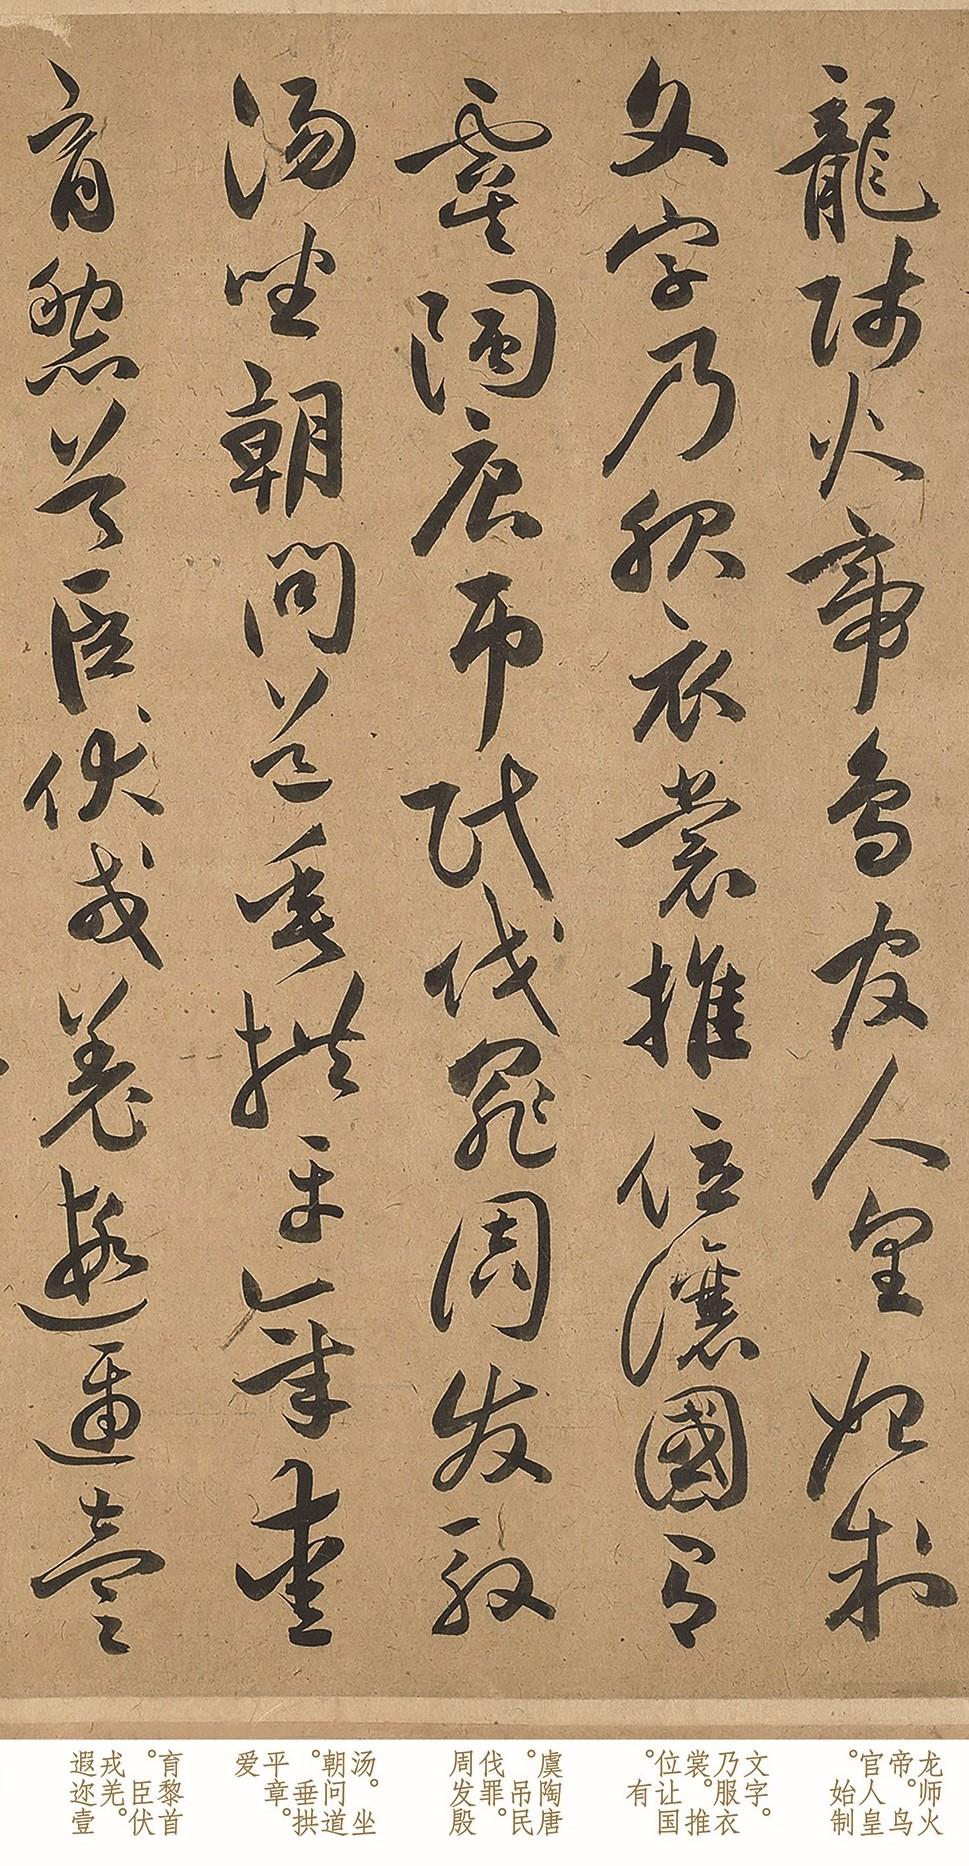 龍師火帝鳥官人皇始制
文字乃服衣裳推位讓國有
虞陶唐弔民伐罪周發殷
湯坐朝問道垂拱平章愛
育黎首臣伏戎羌遐邇壹
龙师火
帝。鸟
官人皇
。始制
文字。
乃服衣
裳。推
位让国
。有
虞陶唐
。吊民
伐罪。
周发殷
汤。坐
朝问道
。垂拱
平章。
爱
育黎首
。臣伏
戎羌。
遐迩壹